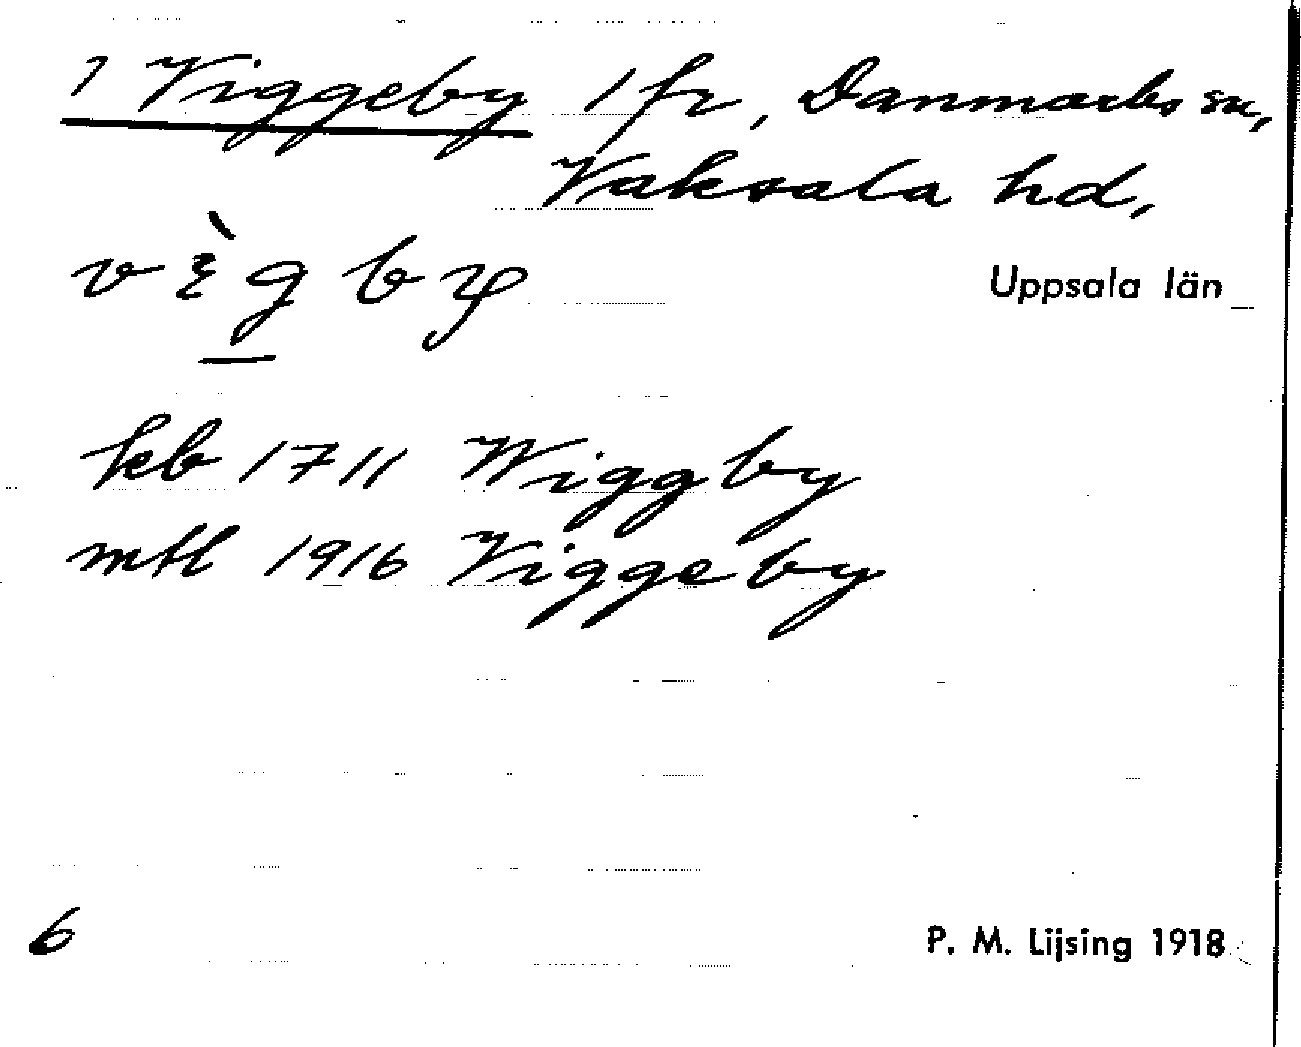 1 Viggeby 1 fr, Danmarks sn,
Vaksala hd,
v ὲ g b y
Uppsala län
hcb 1711 Wiggby
mtl 1916 Viggeby
6
P. M. Lijsing 1918